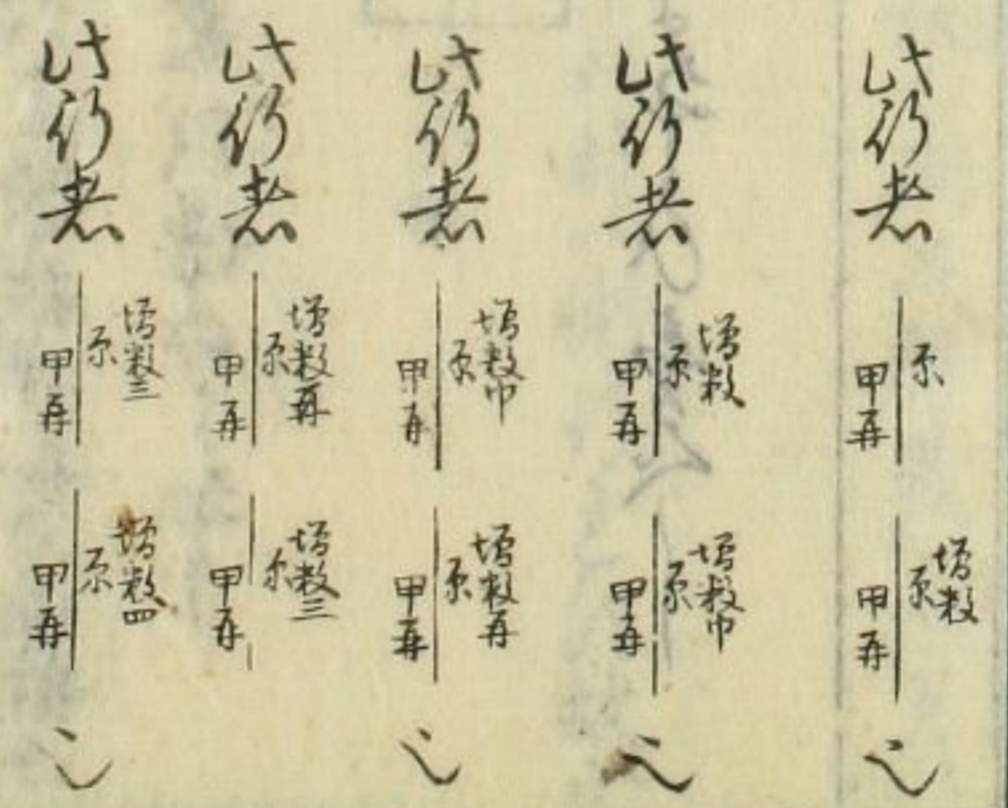 此行者 原｜甲再 増数原｜甲再 也
此行者 増数原｜甲再 増数巾原｜甲再 也
此行者 増数巾原｜甲再 増数再原｜甲再 也
此行者 増数再原｜甲再 増数三原｜甲再
此行者 増数三原｜甲再 増数四原｜甲再 也